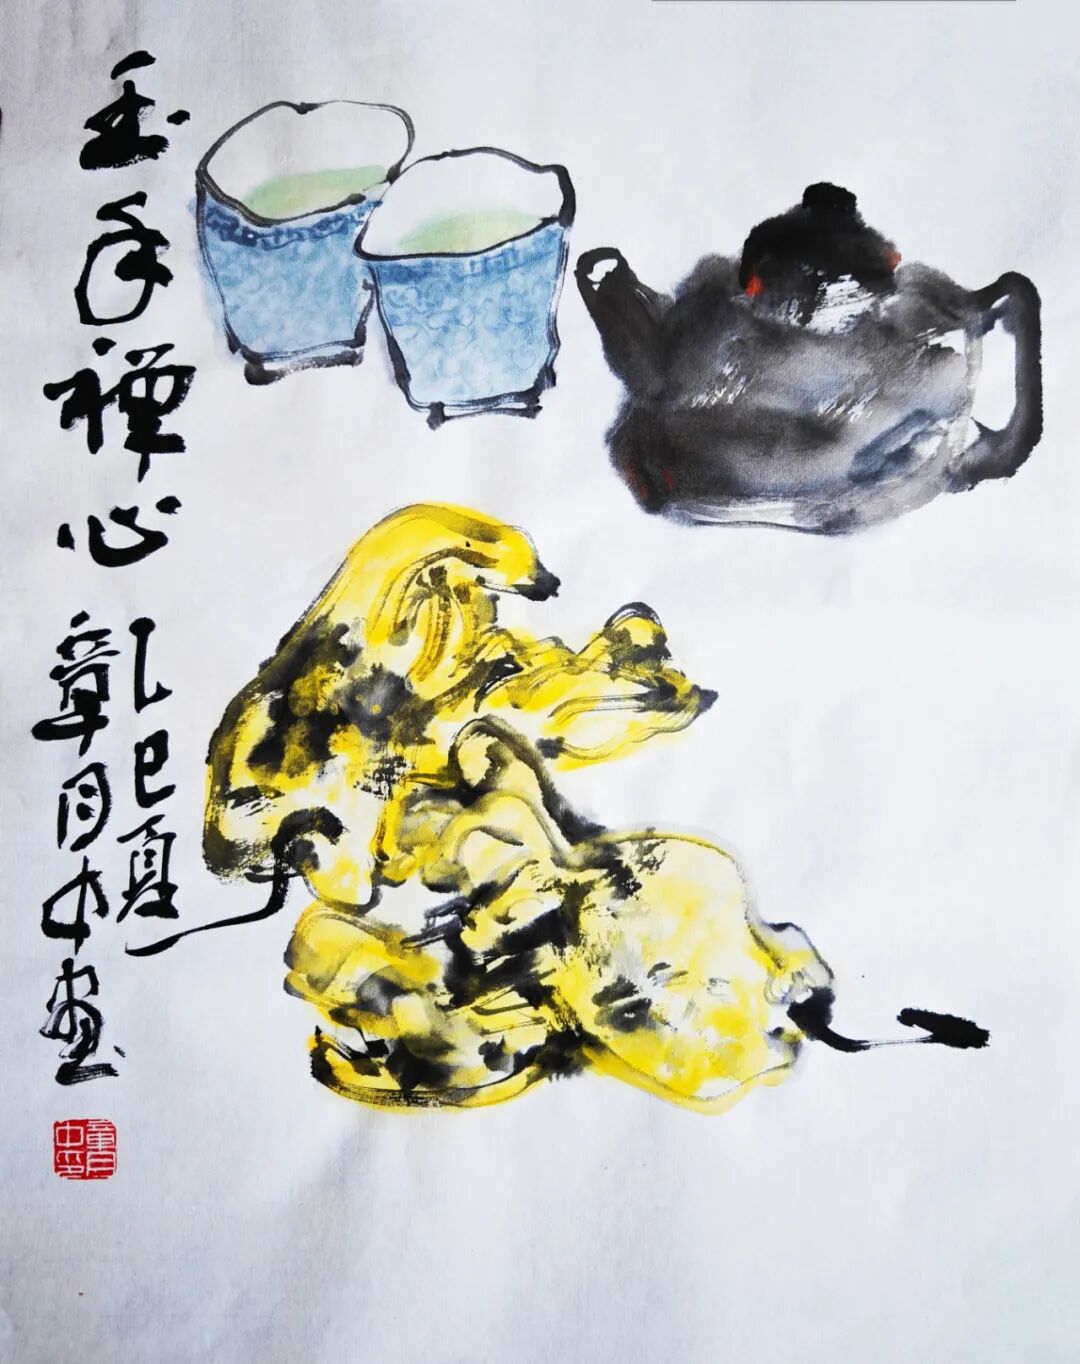 玉手禅心
乙巳夏
章月中画
章月中印